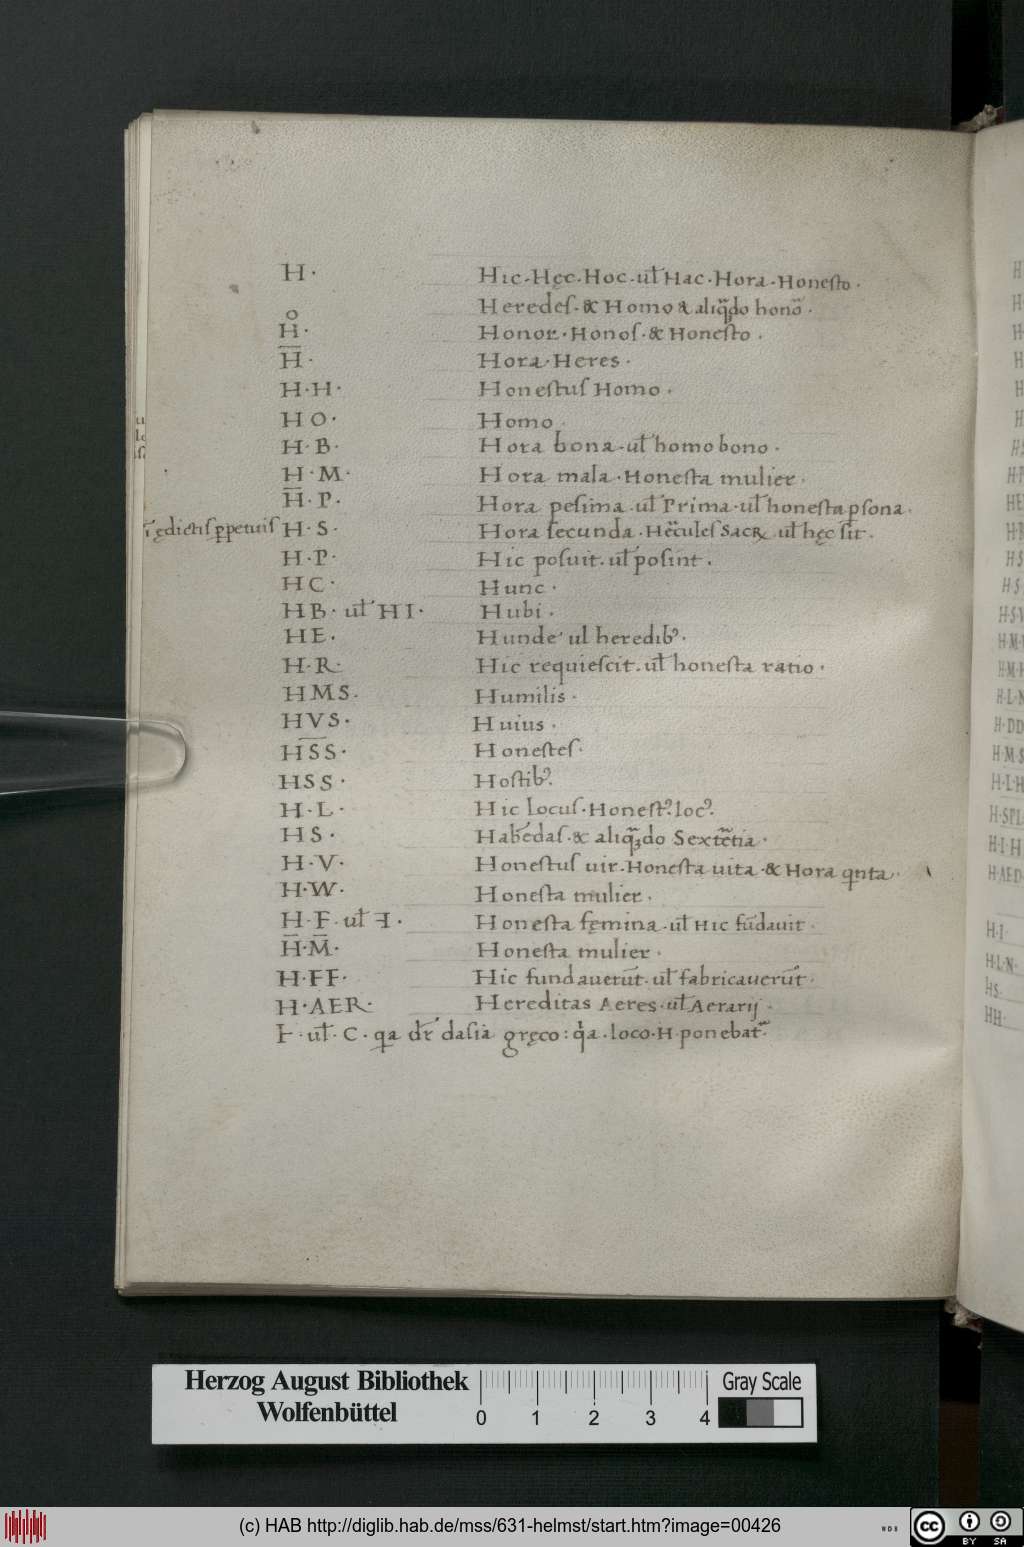 H· Hic·Hęc·Hoc·ul̄ Hac·Hora·Honesto·
Heredes·& Homo & aliqn̄do honō·
Hͦ· Honor·Honos·& Honesto·
H̅· Hora·Heres·
H·H· Honestus Homo·
HO· Homo·
H·B· Hora bona·ul̄ homo bono·
H·M· Hora mala·Honesta mulier·
H̅·P· Hora pesima·ul̄ Prima·ul̄ honesta psona·
ī ędictis ppetuis H·S· Hora secunda·Hērculес Sacꝝ ul̄ hęc sit·
H·P· Hic posuit·ul̄ posint·
HC· Hunc·
HB· ul̄ HI· Hubi·
HE· Hunde ul heredibꝰ·
H·R· Hic requiescit·ul̄ honesta ratio·
HMS· Humilis·
HVS· Huius·
HS̅S̅· Honestes·
HSS· Hostibꝰ·
H·L· Hic locus·Honestꝰ locꝰ·
HS· Habēdas·& aliqn̄do Sextētia·
H·V· Honestus uir·Honesta uita·& Hora qnta·
H·W· Honesta mulier·
H·F·ul̄ Ⅎ· Honesta fęmina·ul̄ Hic fūdauit·
H̅·M̅· Honesta mulier·
H·FF· Hic fundauerūt·ul̄ fabricauerūt·
H·AER· Hereditas Aeres·ul̄ Aerarij·
Ⱶ·ul̄·C·qa dr̄ dasia gręco: qa·loco·H·ponebat̄·
Herzog August Bibliothek
Wolfenbüttel
0 1 2 3 4
Gray Scale
(c) HAB http://diglib.hab.de/mss/631-helmst/start.htm?image=00426
WDB
cc BY SA